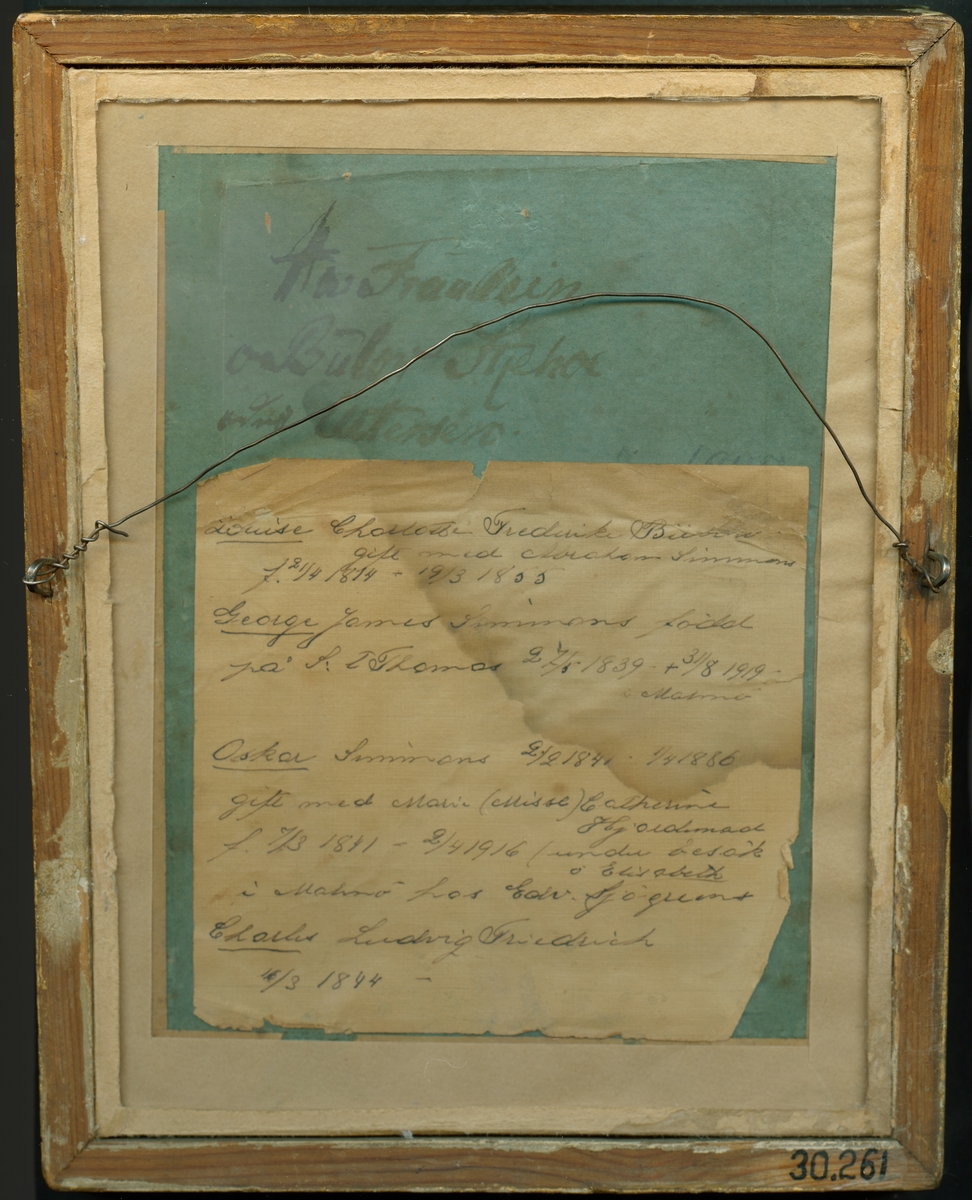 Av Fräulein
Itzehoe
Louise Charlotte Frederike Bülow
gift med Abraham Simmons
f. 21/4 1814 - 19/3 1855
George James Simmons född
på S:t Thomas 27/5 1839 - + 31/8 1919 -
i Malmö
Oskar Simmons 2/2 1841 - 1/4 1886
gift med Marie (Misse) Catherine
Hjordhmad
f. 7/3 1841 - 2/4 1916 (under besök
o Elisabeth
i Malmö hos Edv. Sjögrens
Charles Ludvig Friedrich
/3 1844 -
30.261